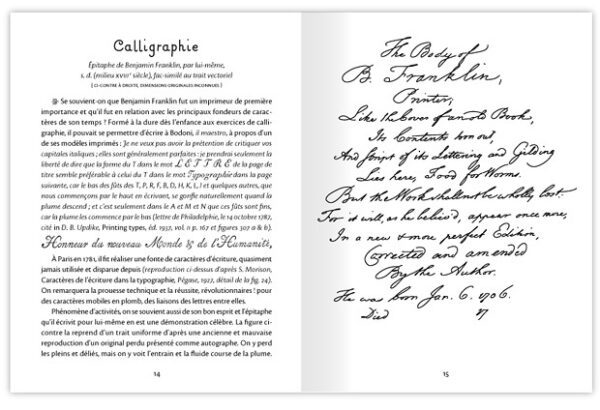 Calligraphie
Épitaphe de Benjamin Franklin, par lui-même,
s. d. (milieu XVIIIe siècle), fac-similé au trait vectoriel
[CI-CONTRE À DROITE, DIMENSIONS ORIGINALES INCONNUES]
Se souvient-on que Benjamin Franklin fut un imprimeur de première
importance et qu'il fut en relation avec les principaux fondeurs de carac-
tères de son temps ? Formé à la dure dès l'enfance aux exercices de calli-
graphie, il pouvait se permettre d'écrire à Bodoni, il maestro, à propos d'un
de ses modèles imprimés : Je ne veux pas avoir la prétention de critiquer vos
capitales italiques ; elles sont généralement parfaites : je prendrai seulement la
liberté de dire que la forme du T dans le mot LETTRE de la page de
titre semble préférable à celui du T dans le mot Typographie dans la page
suivante, car le bas des fûts des T, P, R, F, B, D, H, K, L, I et quelques autres, que
nous commençons par le haut en écrivant, se gonfle naturellement quand la
plume descend ; et c'est seulement dans le A et M et N que ces fûts sont fins,
car la plume les commence par le bas (lettre de Philadelphie, le 14 octobre 1787,
cité in D. B. Updike, Printing types, éd. 1937, vol. II p. 167 et figures 302 a & b).
Honneur du nouveau Monde & de l'Humanité,
À Paris en 1781, il fit réaliser une fonte de caractères d'écriture, quasiment
jamais utilisée et disparue depuis (reproduction ci-dessus d'après S. Morison,
Caractères de l'écriture dans la typographie, Pégase, 1927, détail de la fig. 24).
On remarquera la prouesse technique et la réussite, révolutionnaires ! pour
des caractères mobiles en plomb, des liaisons des lettres entre elles.
Phénomène d'activités, on se souvient aussi de son bon esprit et l'épitaphe
qu'il écrivit pour lui-même en est une démonstration célèbre. La figure ci-
contre la reprend d'un trait uniforme d'après une ancienne et mauvaise
reproduction d'un original perdu présenté comme autographe. On y perd
les pleins et déliés, mais on y voit l'entrain et la fluide course de la plume.
14
The Body of
B. Franklin,
Printer,
Like the Cover of an old Book,
Its Contents torn out,
And script of its Lettering and Gilding
Lies here, Food for Worms.
But the Work shall not be wholly lost:
For it will, as he believ'd, appear once more,
In a new & more perfect Edition,
Corrected and amended
By the Author.
He was born Jan. 6. 1706.
Died 17
15